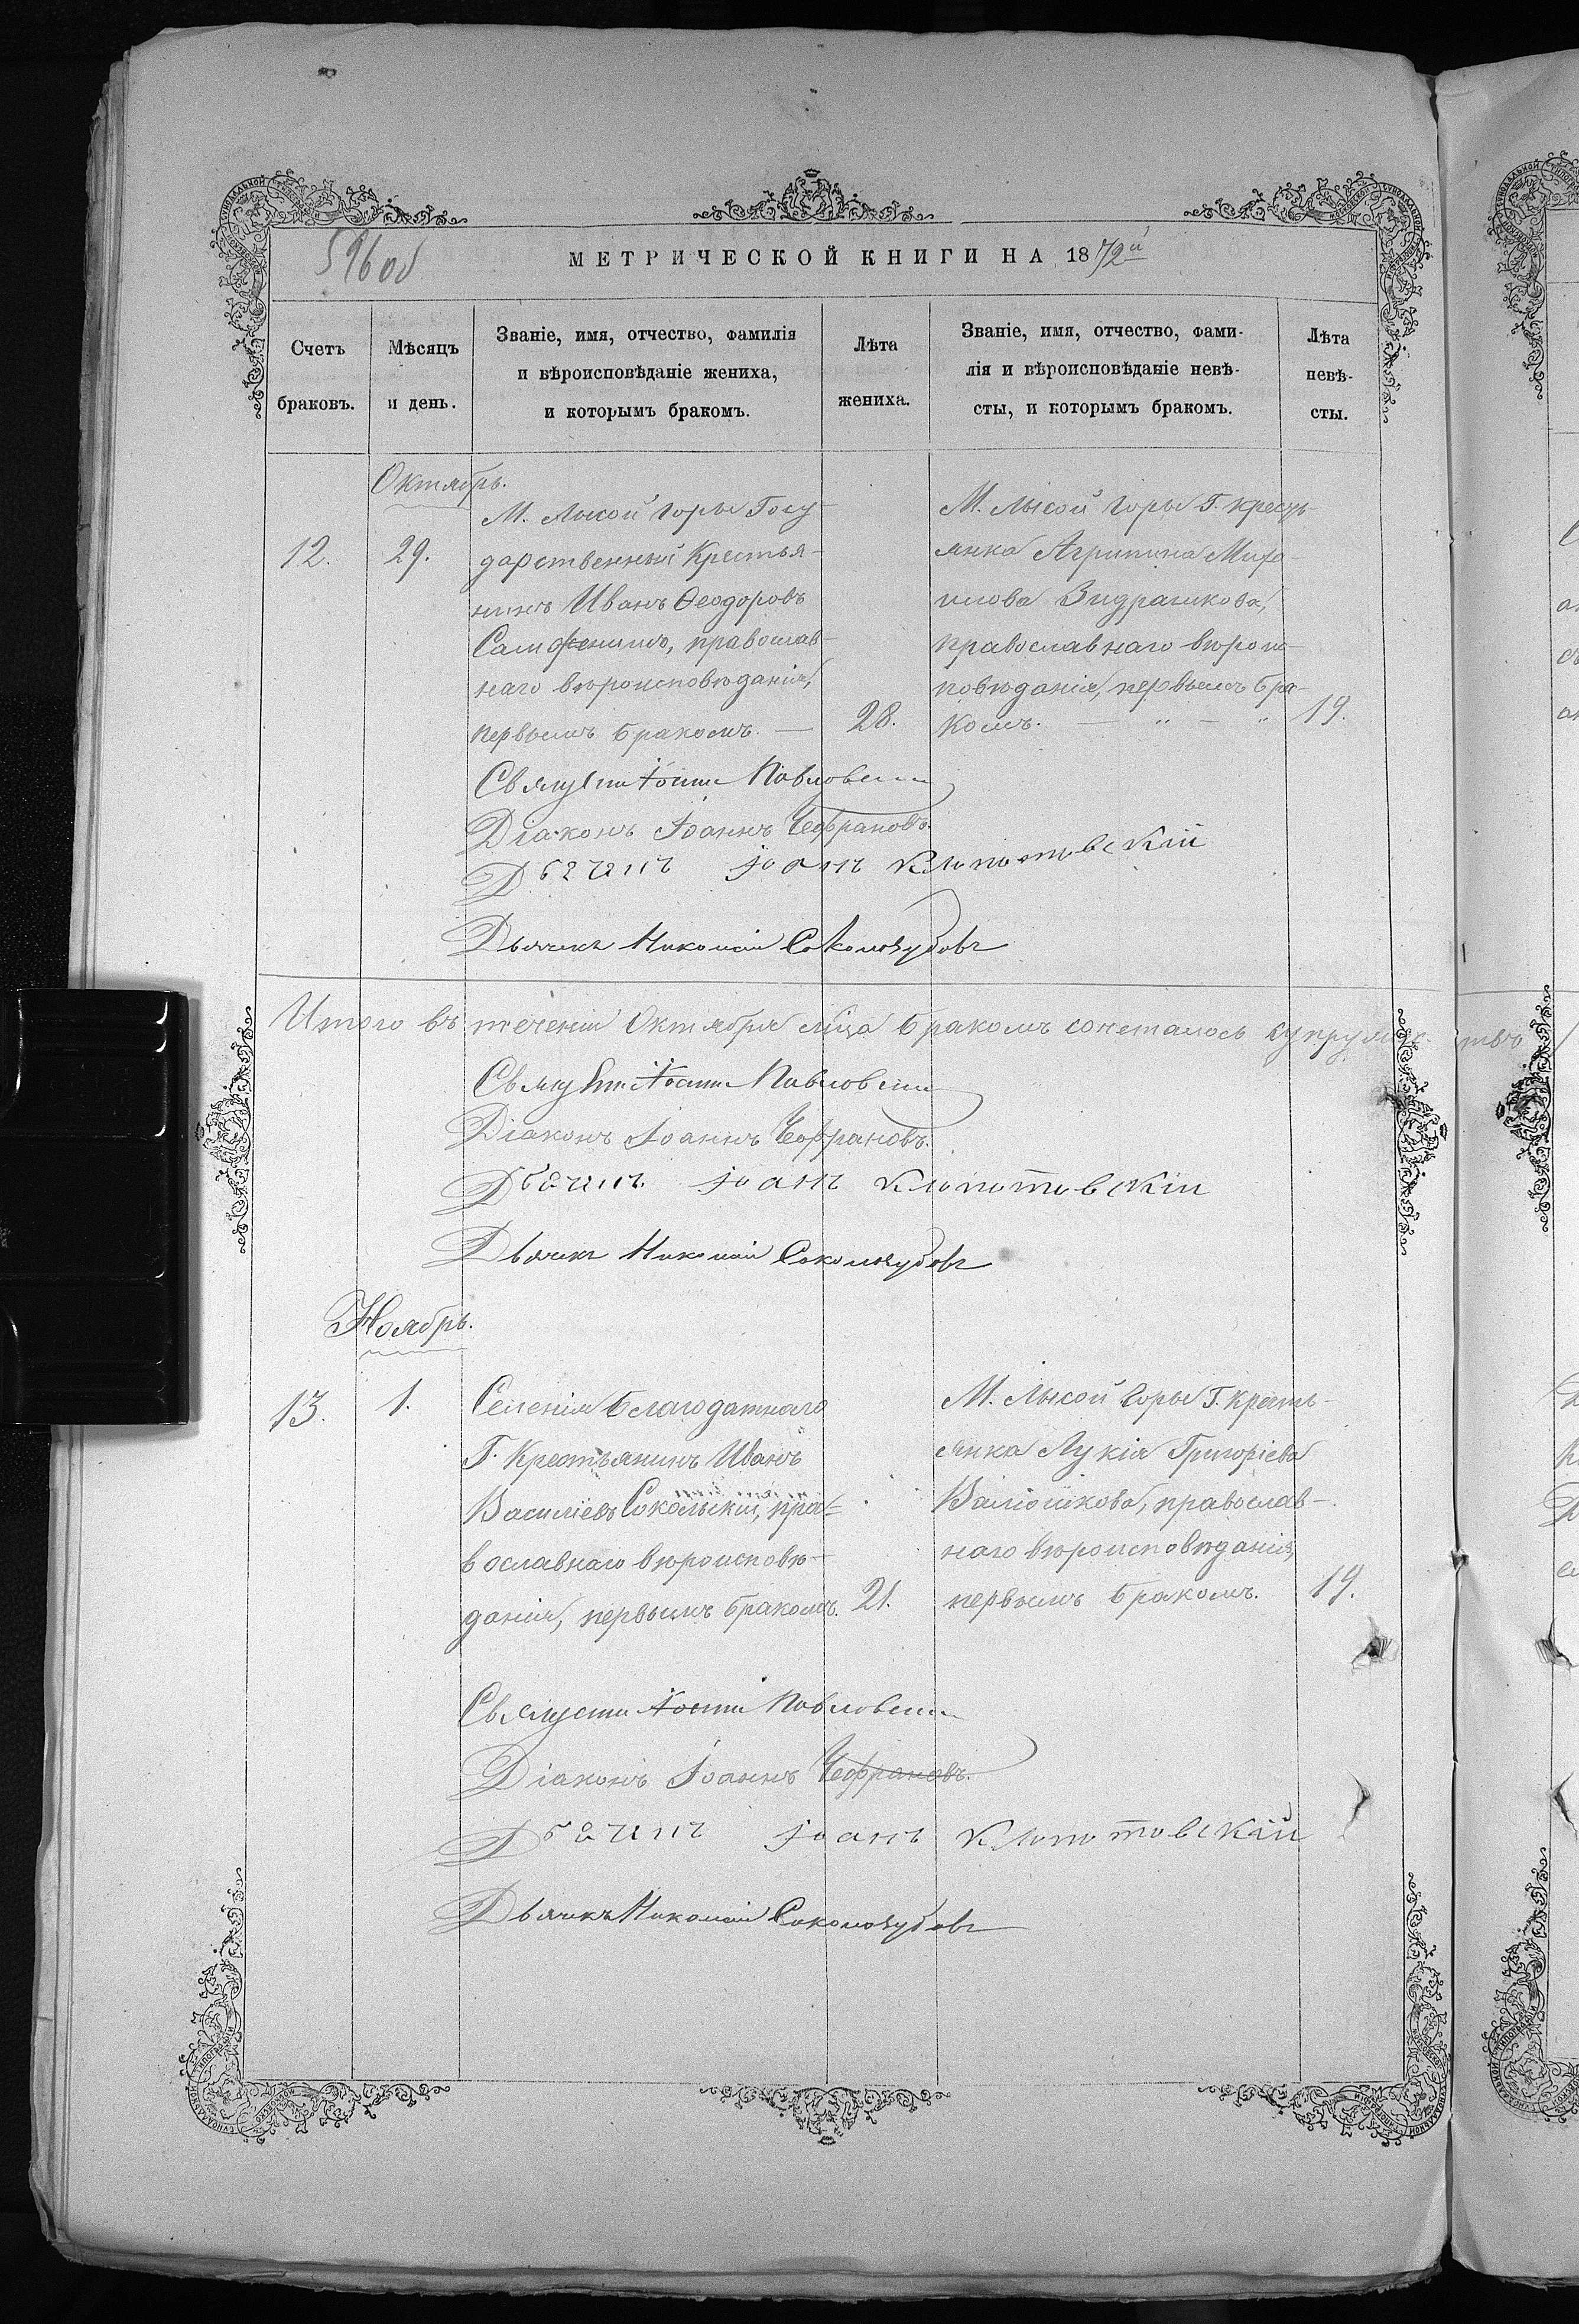 596 об
МЕТРИЧЕСКОЙ КНИГИ НА 1872й
Счетъ браковъ.
Мѣсяцъ и день.
Званіе, имя, отчество, фамилія
и вѣроисповѣданіе жениха,
и которымъ бракомъ.
Лѣта
жениха.
Званіе, имя, отчество, фами-
лія и вѣроисповѣданіе невѣ-
сты, и которымъ бракомъ.
Лѣта
невѣ-
сты.
Октябрь.
12.
29.
М. Лысой Горы Госу-
дарственный Крестья-
нинъ Иванъ Ѳеодоровъ
православ-
наго вѣроисповѣданія,
первымъ бракомъ. —
28.
М. Лысой Горы Г. кресть-
янка Агрипина Миха-
илова
православнаго вѣроис-
повѣданія, первымъ бра-
комъ. — " — "
19.
Діаконъ Іоаннъ Чефрановъ.
Іоанъ Клопотовскій
Дьячекъ Николай Соколозубовъ
Итого въ теченіи Октября м-ца бракомъ сочеталось супружествъ
Діаконъ Іоаннъ Чефрановъ.
Іоанъ Клопотовскій
Дьячекъ Николай Соколозубовъ
Ноябрь.
13.
1.
Селенія Благодатнаго
Г. Крестьянинъ Иванъ
Василіевъ Сокольскій, пра-
вославнаго вѣроисповѣ-
данія, первымъ бракомъ.
21.
М. Лысой Горы Г. кресть-
янка Лукія Григоріева
православ-
наго вѣроисповѣданія,
первымъ бракомъ.
19.
Діаконъ Іоаннъ Чефрановъ.
Іоанъ Клопотовскій
Дьячекъ Николай Соколозубовъ